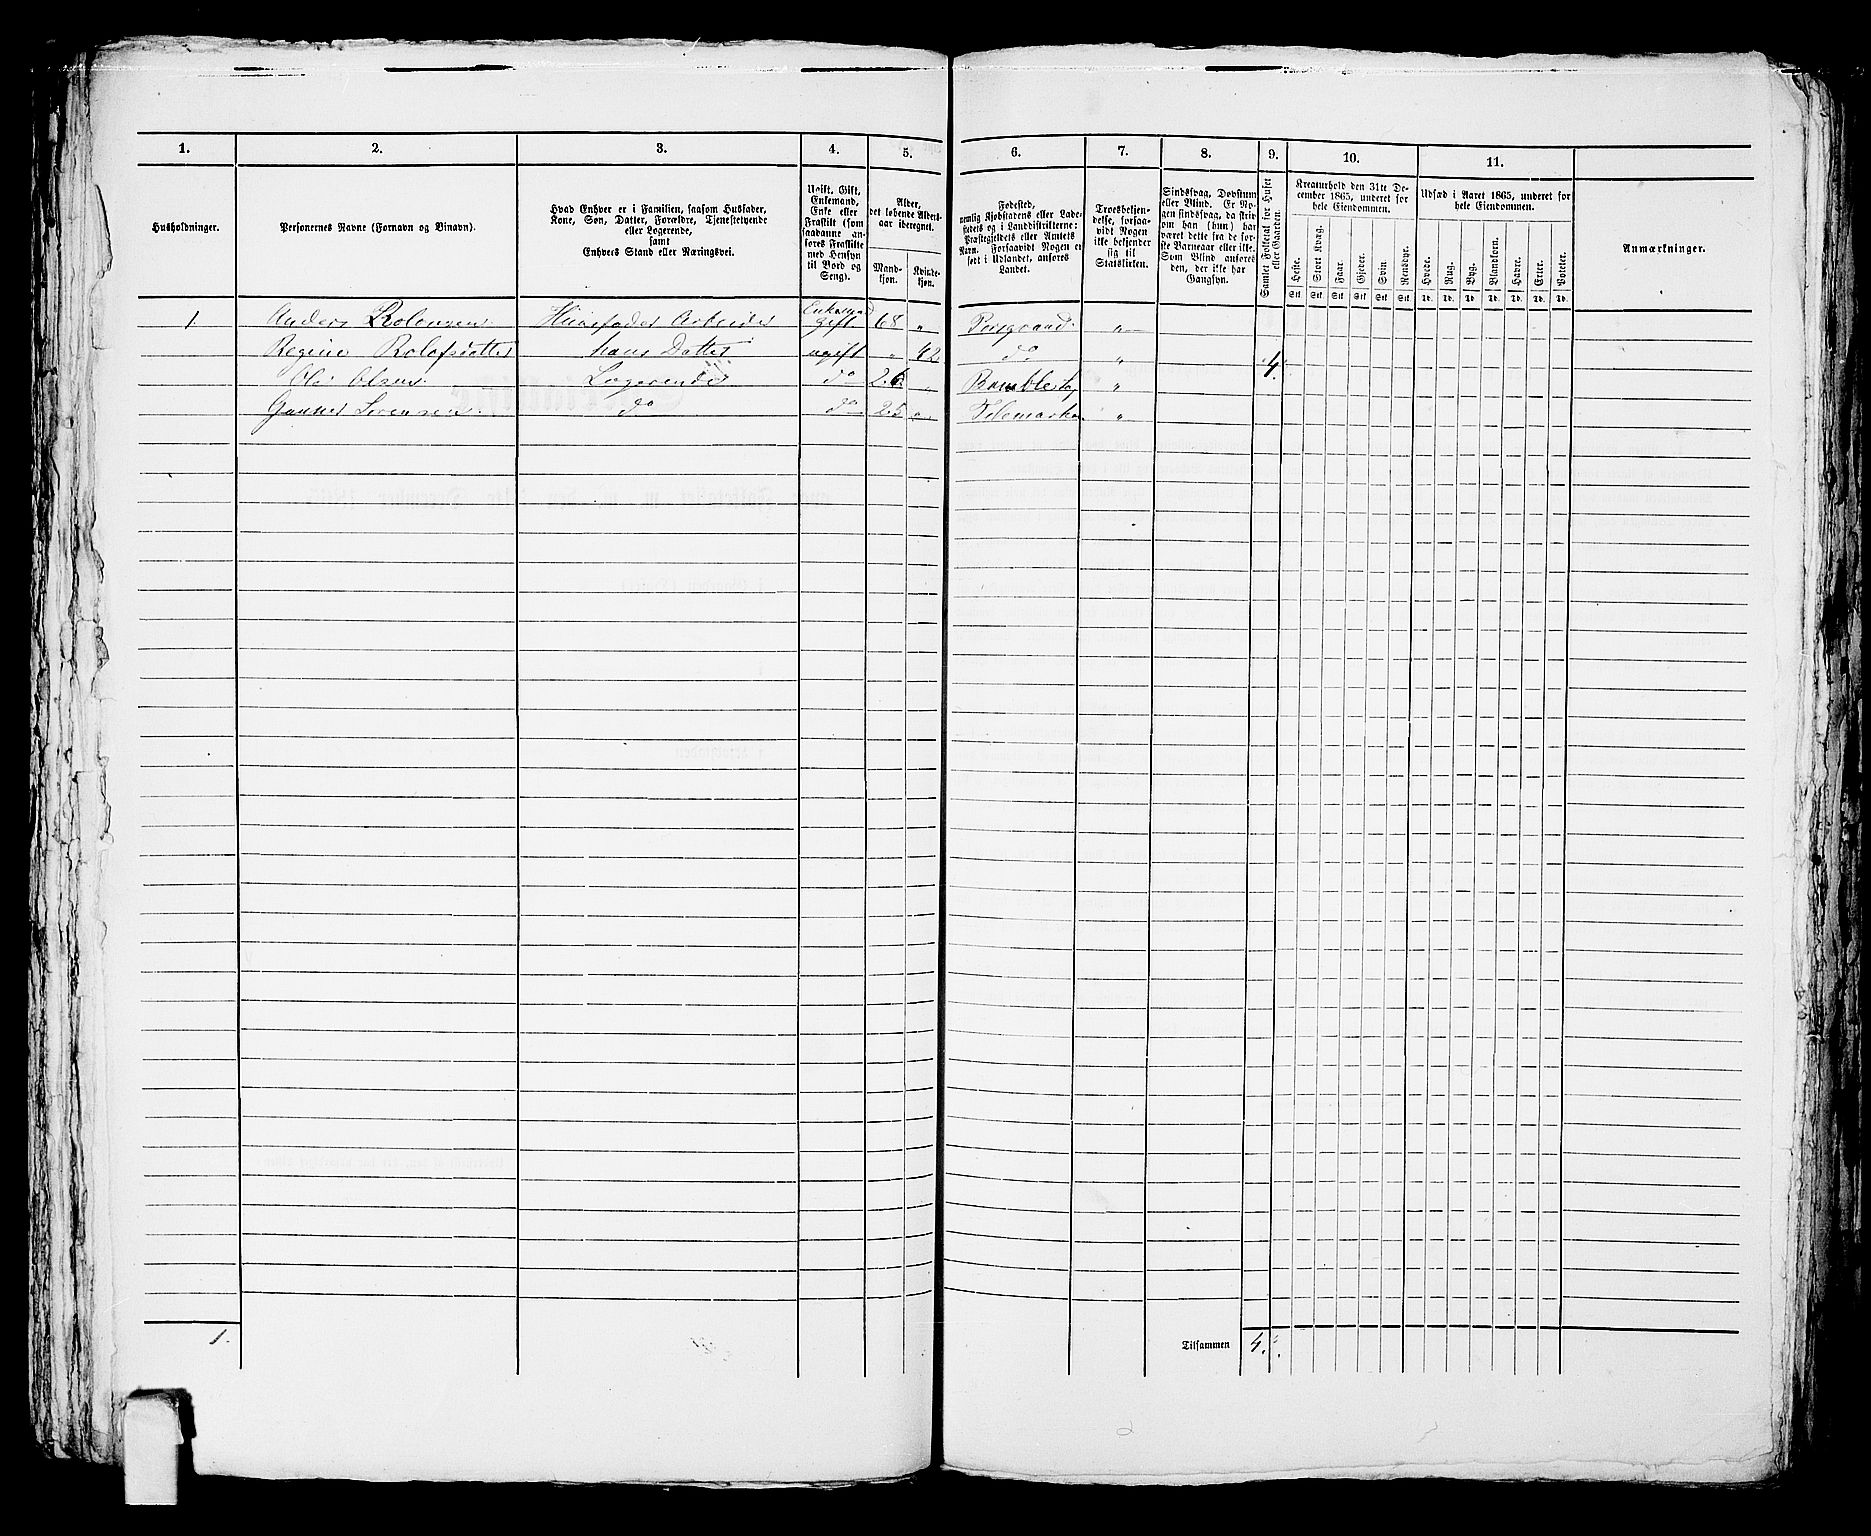 1.
2.
3.
4.
5.
6.
7.
8.
9.
10.
11.
Husholdninger.
Personernes Navne (Fornavn og Binavn).
Hvad Enhver er i Familien, saasom Husfader,
Kone, Søn, Datter, Forældre, Tjenestetyende
eller Logerende,
samt
Enhvers Stand eller Næringsvei.
Ugift, Gift,
Enkemand,
Enke eller
Fraskilt (som
saadanne an-
føres Fraskilte
med Hensyn
til Bord og
Seng).
Alder,
det løbende Alders-
aar iberegnet.
Mand-
kjøn.
Kvinde-
kjøn.
Fødested,
nemlig Kjøbstadens eller Lade-
stedets og i Landdistrikterne:
Præstegjeldets eller Amtets
Navn. Forsaavidt Nogen er
født i Udlandet, anføres
Landet.
Troesbekjen-
delse, forsaa-
vidt Nogen
ikke bekjender
sig til
Statskirken.
Sindssvag, Døvstum
eller Blind. Er No-
gen sindssvag, da skriv
om han (hun) har
været dette fra de før-
ste Barneaar eller ikke.
Som Blind anføres
den, der ikke har
Gangsyn.
Samlet Folketal for Huset
eller Gaarden.
Kreaturhold den 31te De-
cember 1865, underet for
hele Eiendommen.
Heste.
Stort Kvæg.
Faar.
Gjeder.
Svin.
Rensdyr.
Stk. Stk. Stk. Stk. Stk. Stk.
Udsæd i Aaret 1865, underet for
hele Eiendommen.
Hvede.
Rug.
Byg.
Blandkorn.
Havre.
Erter.
Poteter.
Td. Td. Td. Td. Td. Td. Td.
Anmærkninger.
Enkemand
1 Anders Husfader Arbeider gift 68 "
Regine Rolofsdatter hans Datter ugift " 42 do "
4.
Ole Olsen Logerende do 26 "
Gunner Sørensen do do 25 " Telemarken "
1.
Tilsammen 4.